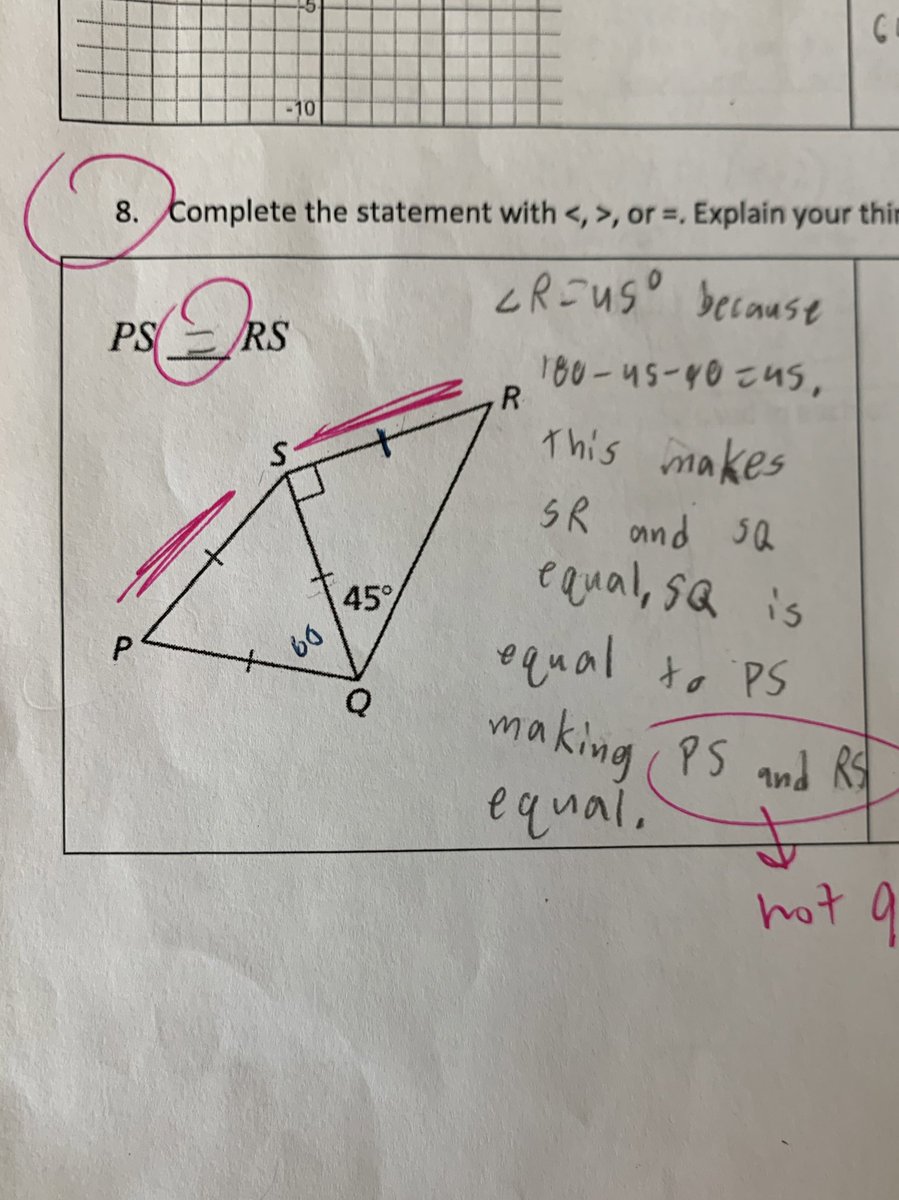 -5
-10
8. Complete the statement with <, >, or =. Explain your thin
PS = RS
∠R=45° because
180-45-90=45.
This makes
SR and SQ
equal, SQ is
equal to PS
making PS and RS
equal.
R
S
45°
60
P
Q
not